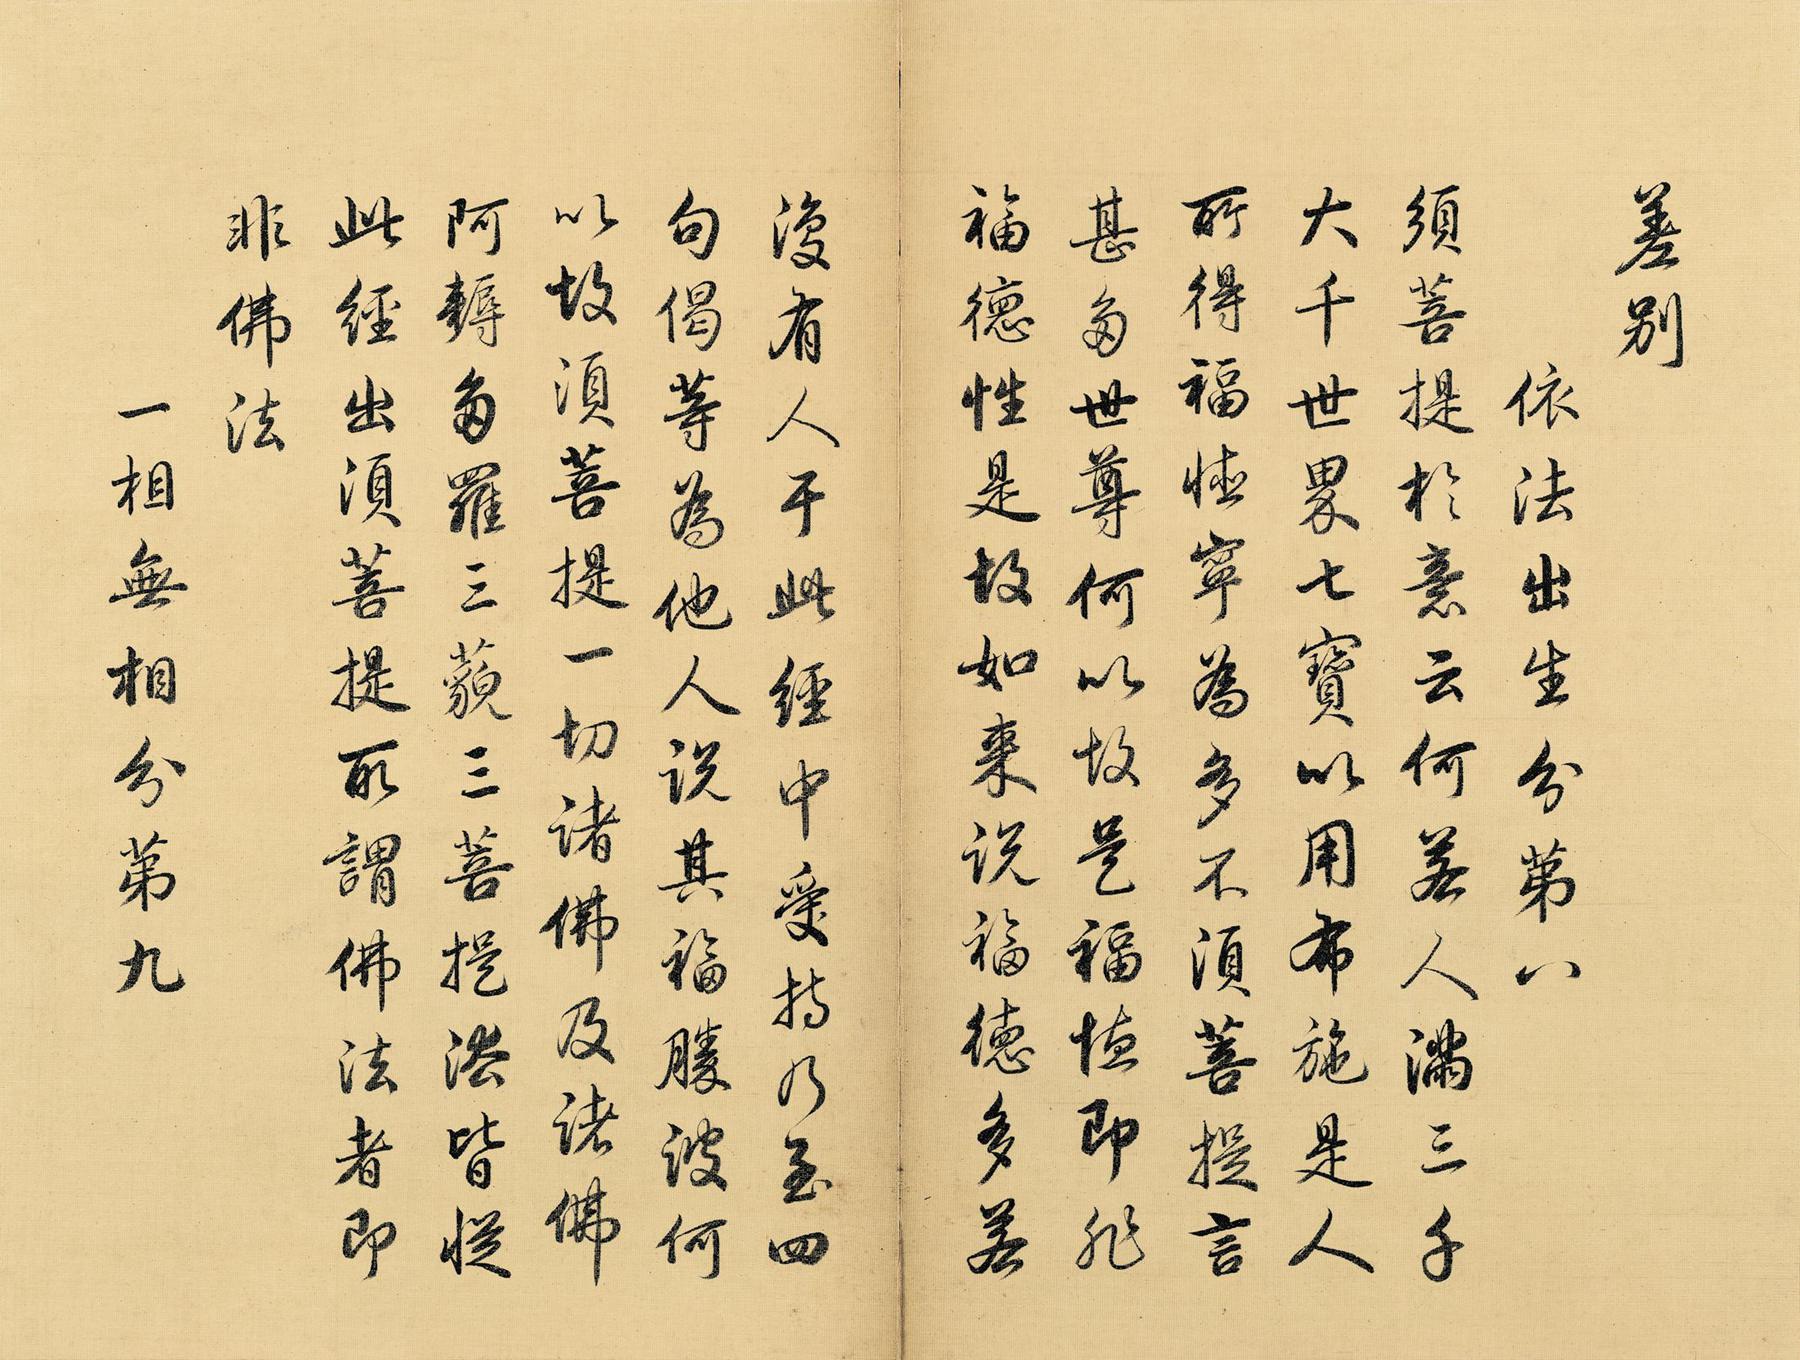 差別
依法出生分第八
須菩提於意云何若人滿三千
大千世界七寶以用布施是人
所得福德寧為多不須菩提言
甚多世尊何以故是福德即非
福德性是故如來说福德多若
復有人于此經中受持乃至四
句偈等為他人说其福勝彼何
以故須菩提一切諸佛及諸佛
阿耨多羅三藐三菩提法皆從
此經出須菩提所謂佛法者即
非佛法
一相無相分第九